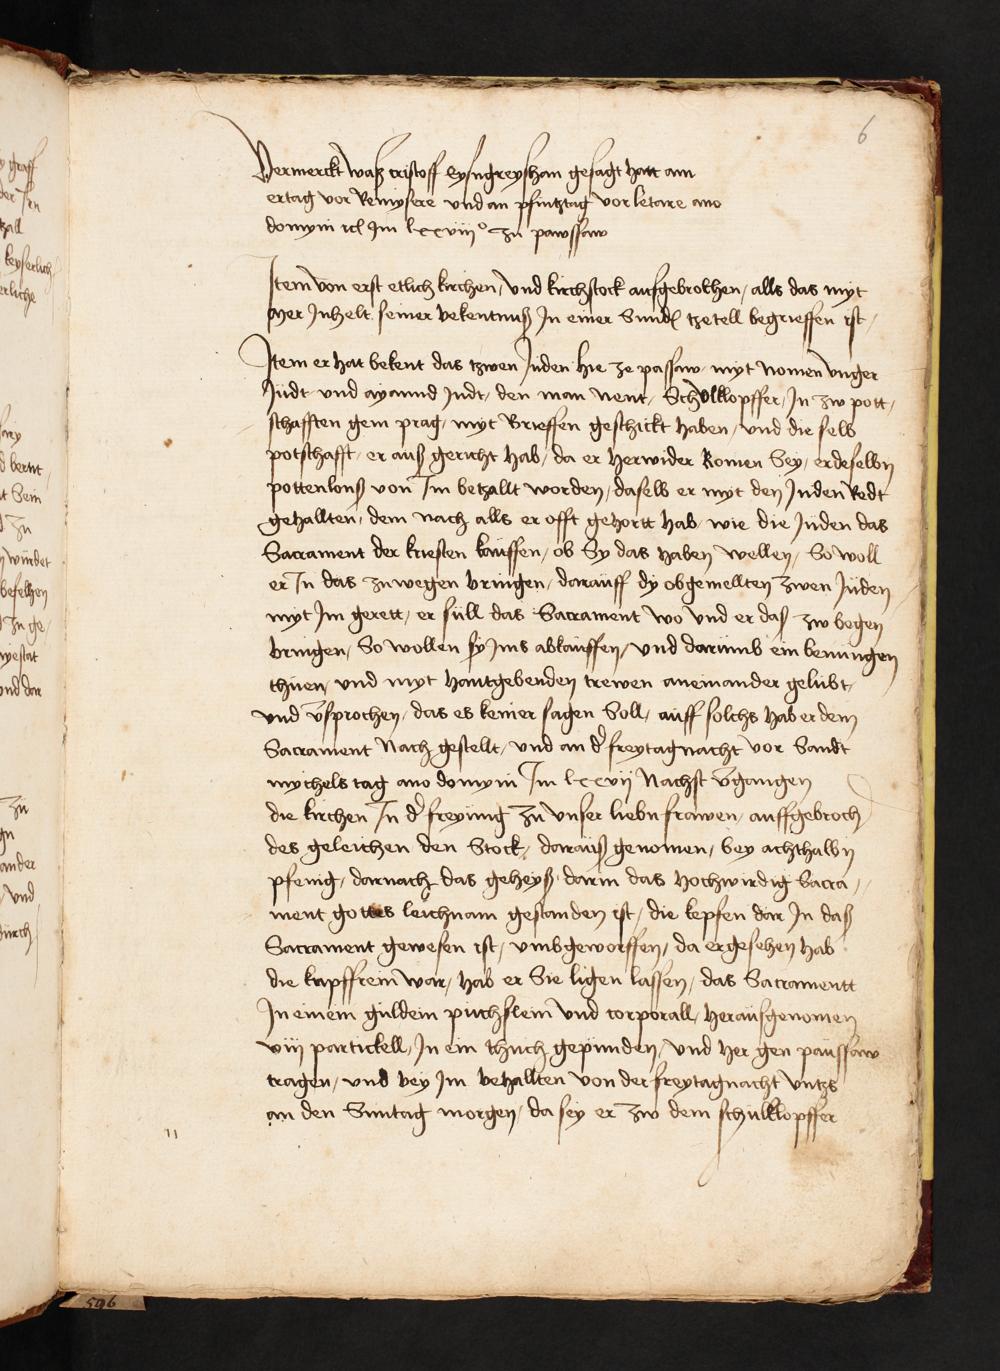 6
Vermerckt waß cristoff eysngreyshan gesagt hatt am
ertag vor Remysere und an pfintztag vor letare ano
domyni rcl Im lxxviij° zu pawssaw
Item von erst etlich kirchen, und kirchstock aufgebrochen, alls das myt
mer Inhelt seiner bekentnuß In einer Sundr tzetell begrieffen ist,
Item er hat bekent das tzwen Juden hie ze passaw myt nomen unger
Judt und Judt, den man nent, Schulklopffer, In zw pott,
schafften gem prag, myt Brieffen geschickt haben, und die selb
potschafft, er auß gericht hab, da er herwider komen Sey, erdeselbn
pottenlonß von Im betzallt worden, daselb er myt den Juden Redt
gehallten, dem nach alls er offt gehortt hab, wie die Juden das
Sacrament der kriesten kauffen, ob Sy das haben wellen, So woll
er In das zuwegen bringen, darauff dy obgemellten zwen Juden
myt Im gerett, er süll das Sacrament wo und er daß zw begen
bringen, So wollen sy Ims abkauffen, und darumb ein benüngen
thuen, und myt hantgebenden trewen aneinander gelübt,
und v̄sprochen, das es keiner sagen Soll, auff solchs hab er dem
Sacrament Nach gestellt, und an dr freytagnacht vor Sandt
mychels tag ano domyni Im lxxvij Nachst v̄gangen
die kirchen In dr freyung zu unser liebn frawen, auffgebroch
des geleichen den Stock, darauß genomen, bey achthalbn
pfenig, darnach das geheyß darin das hochwirdig Sacra,,
ment gottes leichnam gestanden ist, die kepfen dar In daß
Sacrament gewesen ist, umbgeworffen, da er gesehen hab
die kupffrein war, hab er Sie ligen lassen, das Sacramentt
In einem guldein püchslein und corporall, herausgenomen
viij partickell, In ein thuch gepunden, und her gen paussaw
tragen, und bey Im behallten von der freytagnacht untzs
an den Suntag morgen, da sey er zw dem schulklopffer
596